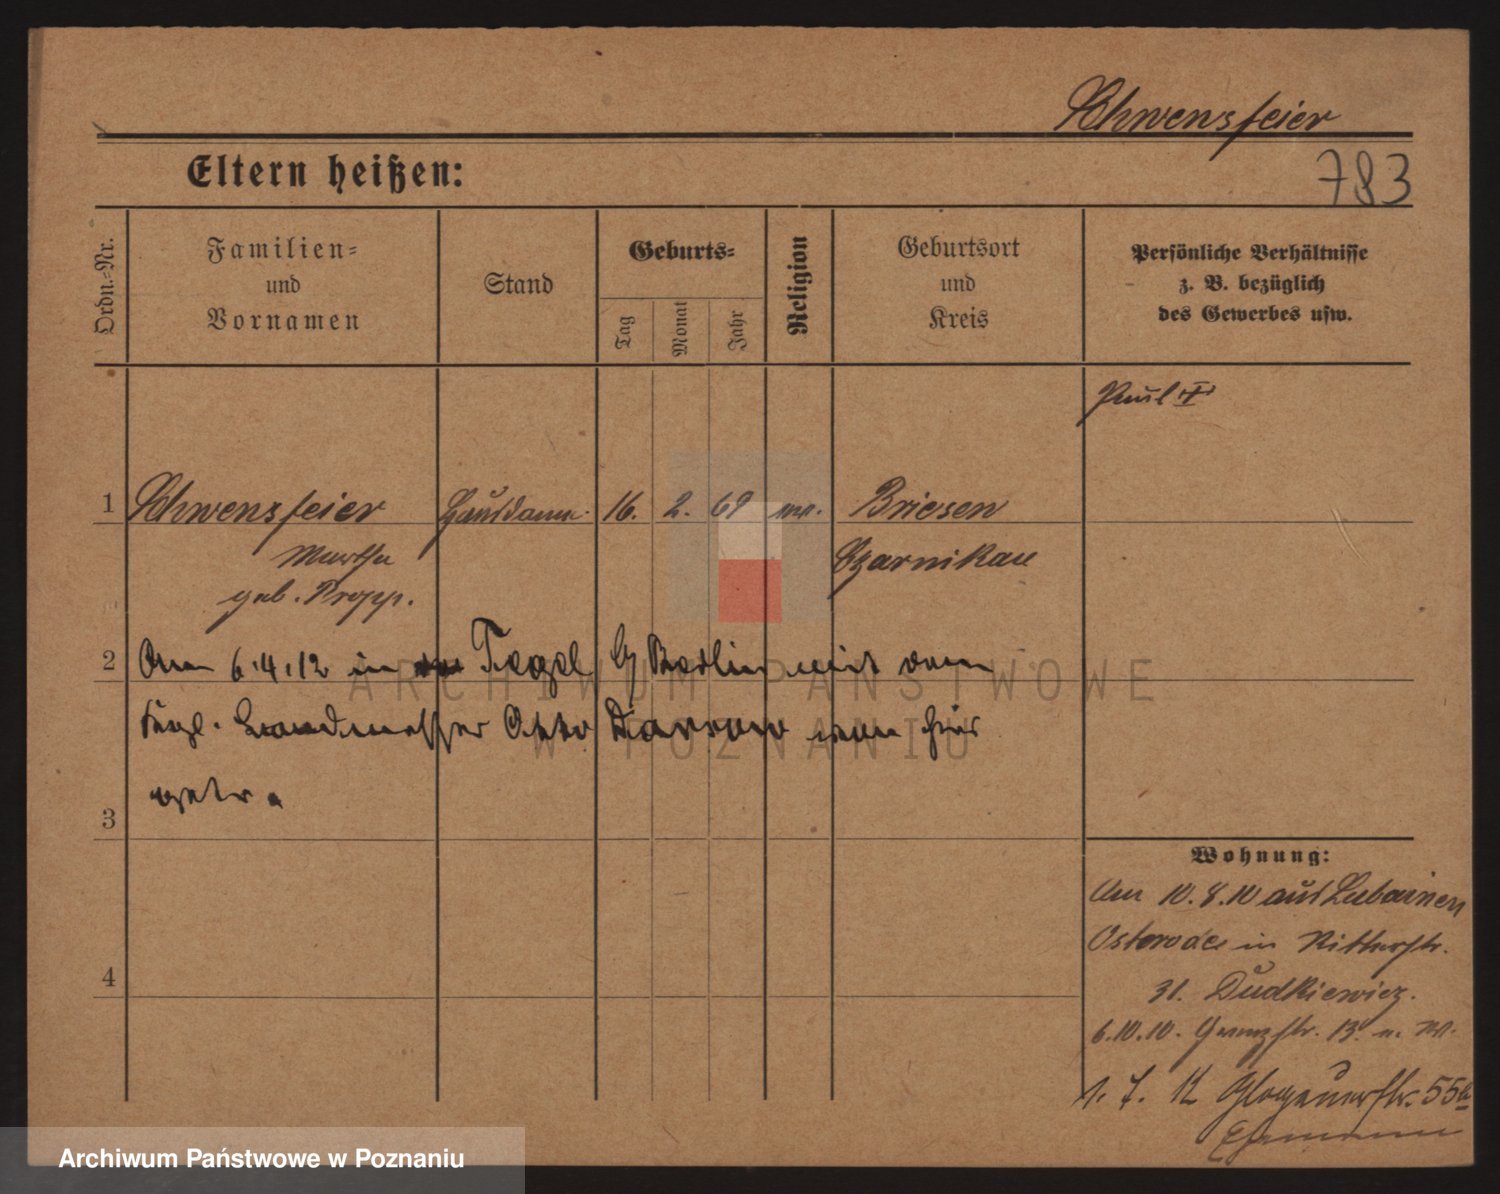 Schwensfeier
783
Eltern heißen:
Ordn.-Nr.
Familien-
und
Vornamen
Stand
Geburts-
Tag
Monat
Jahr
Religion
Geburtsort
und
Kreis
Persönliche Verhältnisse
z. B. bezüglich
des Gewerbes usw.
Paul II
1 Schwensfeier Hausdame 16. 2. 69 ev. Briesen
Martha Czarnikau
geb. Propp.
2 Am 6.4.12 in Tegel b/ Berlin mit dem
Kngl. Landmesser Otto von hier
getr.
3
4
Wohnung:
Am 10.8.10 aus Lubainen
Osterode in Ritterstr.
31. Dudkiewicz.
6.10.10. Grenzstr. 13
1. 7. 12 Glogauerstr. 55a
Ehemann
ARCHIWUM PAŃSTWOWE
W POZNANIU
Archiwum Państwowe w Poznaniu